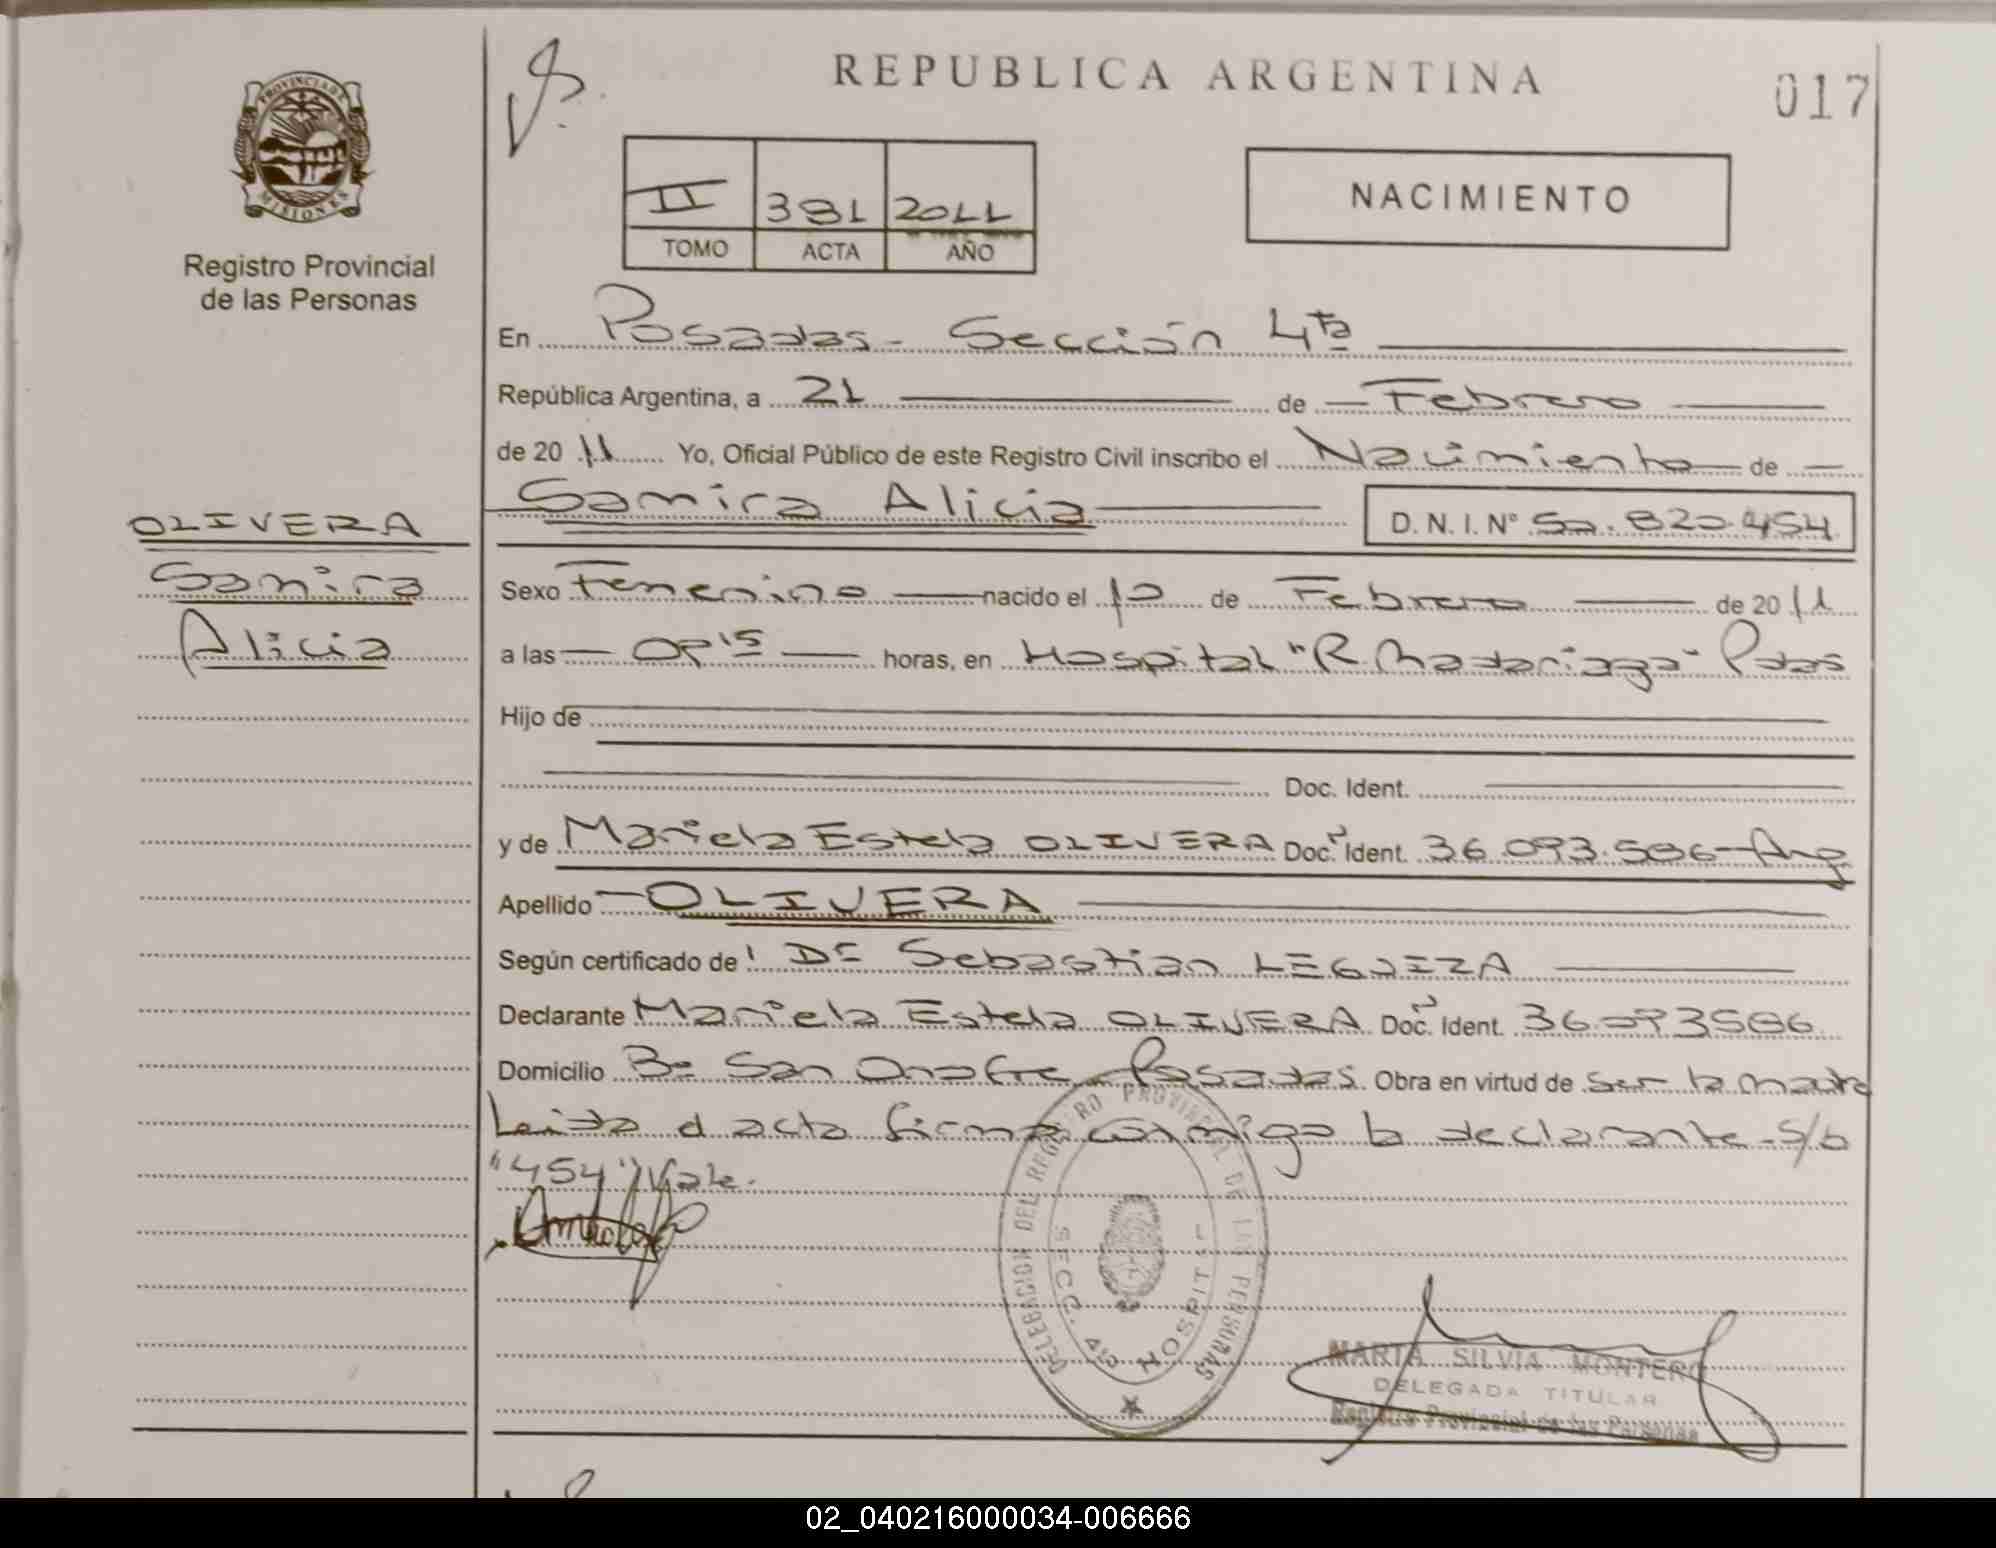 REPUBLICA ARGENTINA
017
PROVINCIA DE
MISIONES
Registro Provincial
de las Personas
II 381 2011
TOMO ACTA AÑO
NACIMIENTO
En Posadas - Sección 4ta
República Argentina, a 21 de Febrero
de 2011 Yo, Oficial Público de este Registro Civil inscribo el Nacimiento de
Samira Alicia D.N.I. Nº 50.820.454
OLIVERA
Samira
Alicia
Sexo Femenino nacido el 10 de Febrero de 2011
a las horas, en Hospital "R. Madariaga" Pdas
Hijo de
Doc. Ident.
y de Mariela Estela OLIVERA Doc. Ident. 36.093.586 - Arg
Apellido - OLIVERA
Según certificado de: Dr Sebastian LEGUIZA
Declarante Mariela Estela OLIVERA Doc. Ident. 36093586
Domicilio Bº San Onofre Posadas. Obra en virtud de ser la madre
Leida el acta firma conmigo la declarante - S/b
"454" Vale.
DELEGACION DEL REGISTRO PROVINCIAL DE LAS PERSONAS
SECC. 4ta HOSPITAL
MARTA SILVIA MONTERO
DELEGADA TITULAR
Registro Provincial de las Personas
02_040216000034-006666